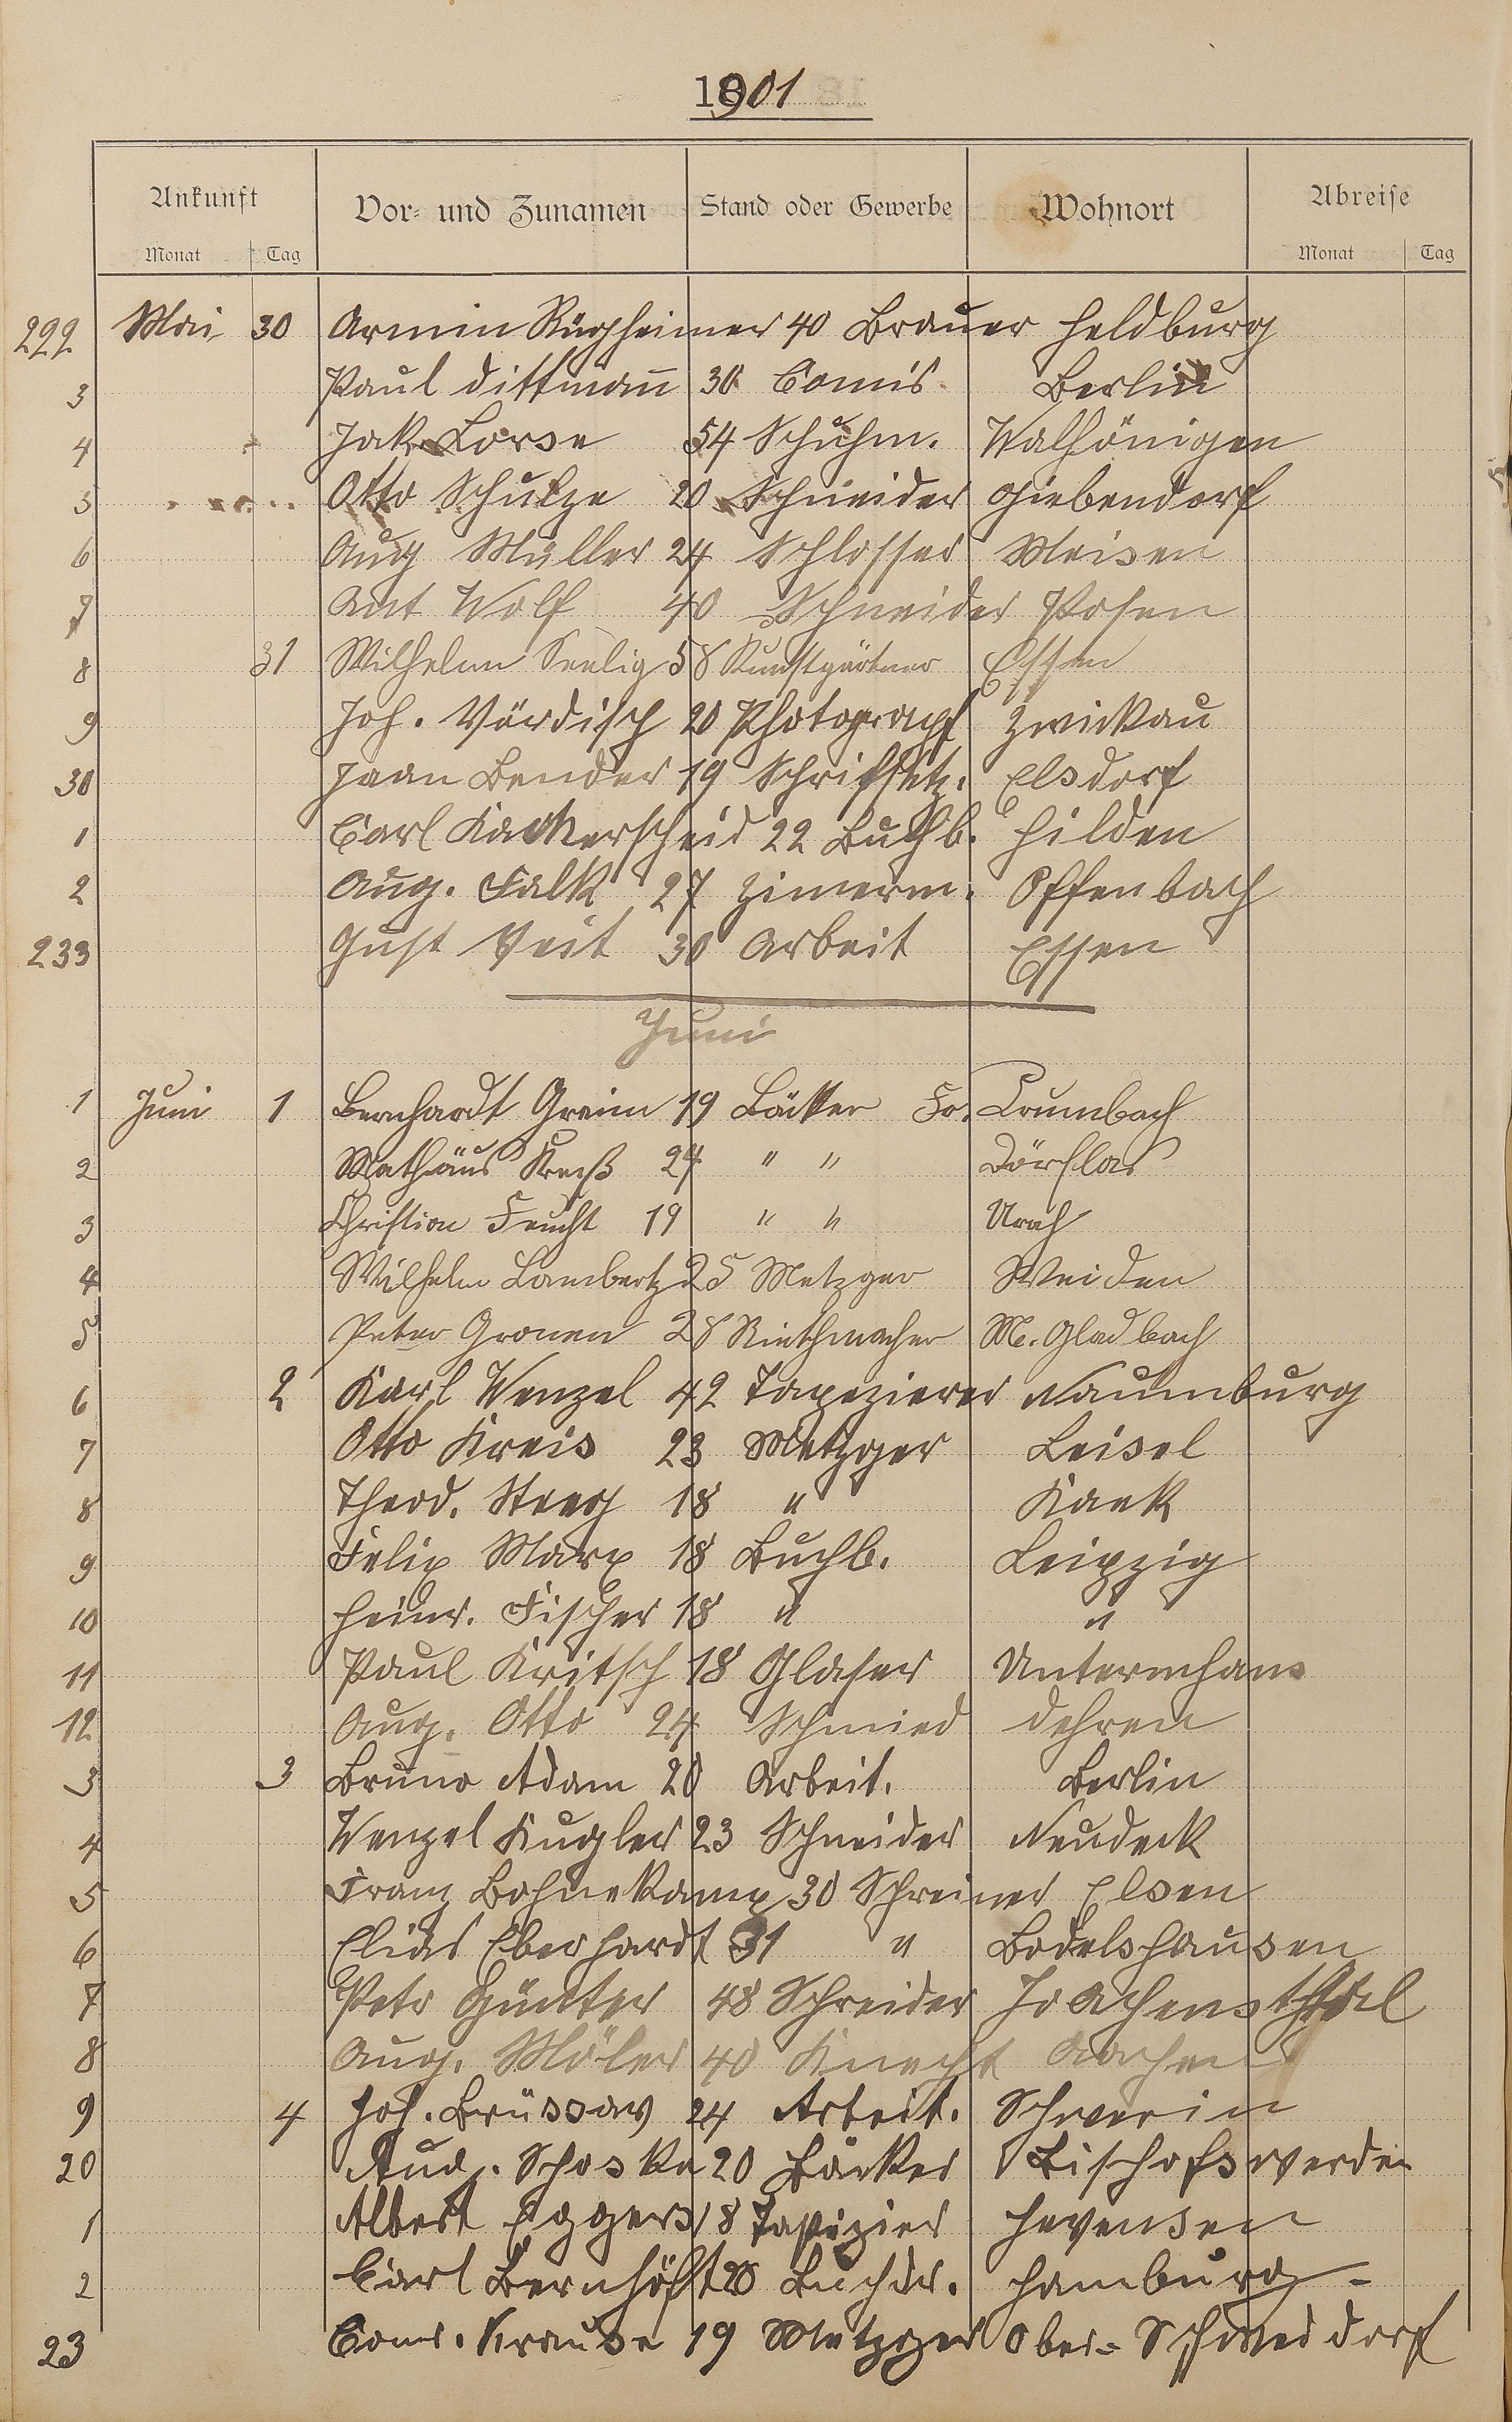 1901
Ankunft Vor- und Zunamen Stand oder Gewerbe Wohnort Abreise
Monat Tag Monat Tag
222 Mai 30 Armin Rügheimer 40 Brauer Heldburg
3 Paul Dittmann 30 Comis Berlin
4 Jak. Lorse 54 Schuhm.
5 Otto Schulze 20 Schneider Giebendorf
6 Aug Müller 24 Schlosser Meisen
7 Ant Wolf 40 Schneider Posen
8 31 Wilhelm Seelig 58 Kunstgärtner Essen
9 Joh. Värdisch 20 Photograph Zwickau
30 Jean Bender 19 Schriftsetz. Elsdorf
1 Carl Kackerscheid 22 Buchb. Hilden
2 Aug. Falk 27 Zimerm. Offenbach
233 Gust Veit 30 Arbeit Essen
Juni
1 Juni 1 Bernhardt Greim 19 Bäcker Fr. Crumbach
2 Mathäus Kreß 24 " " Dörflas
3 Christian Feucht 19 " " Urach
4 Wilhelm Lambertz 25 Metzger Weiden
5 Peter Gronen 28 Riethmacher M. Gladbach
6 2 Karl Wenzel 42 Tapezierer Naumburg
7 Otto Kreis 23 Metzger Leisel
8 Theod. Steeg 18 "
9 Felix Marx 18 Buchb. Leipzig
10 Heinr. Fischer 18 " "
11 Paul Kritsch 18 Glaser Untermhaus
12 Aug. Otto 24 Schmied Dehren
3 3 Bruno Adam 20 Arbeit. Berlin
4 Wenzel Kugler 23 Schneider Neudeck
5 Franz Bohnekamp 30 Schreiner Elsen
6 Elias Eberhardt 31 " Bodelshausen
7 Petr Günter 48 Schreider Joachensthal
8 Aug. Möler 40 Knecht Aachen
9 4 Joh. Brüssow 24 Arbeit. Schwerin
20 Aud. Schoska 20 Bäcker Bischofswerder
1 Albert Eggers 18 Tapizier Hevensen
2 Carl Bernhöft 20 Buchdr. Hamburg
23 Conr. Krause 19 Metzger Ober-Schmeddorf